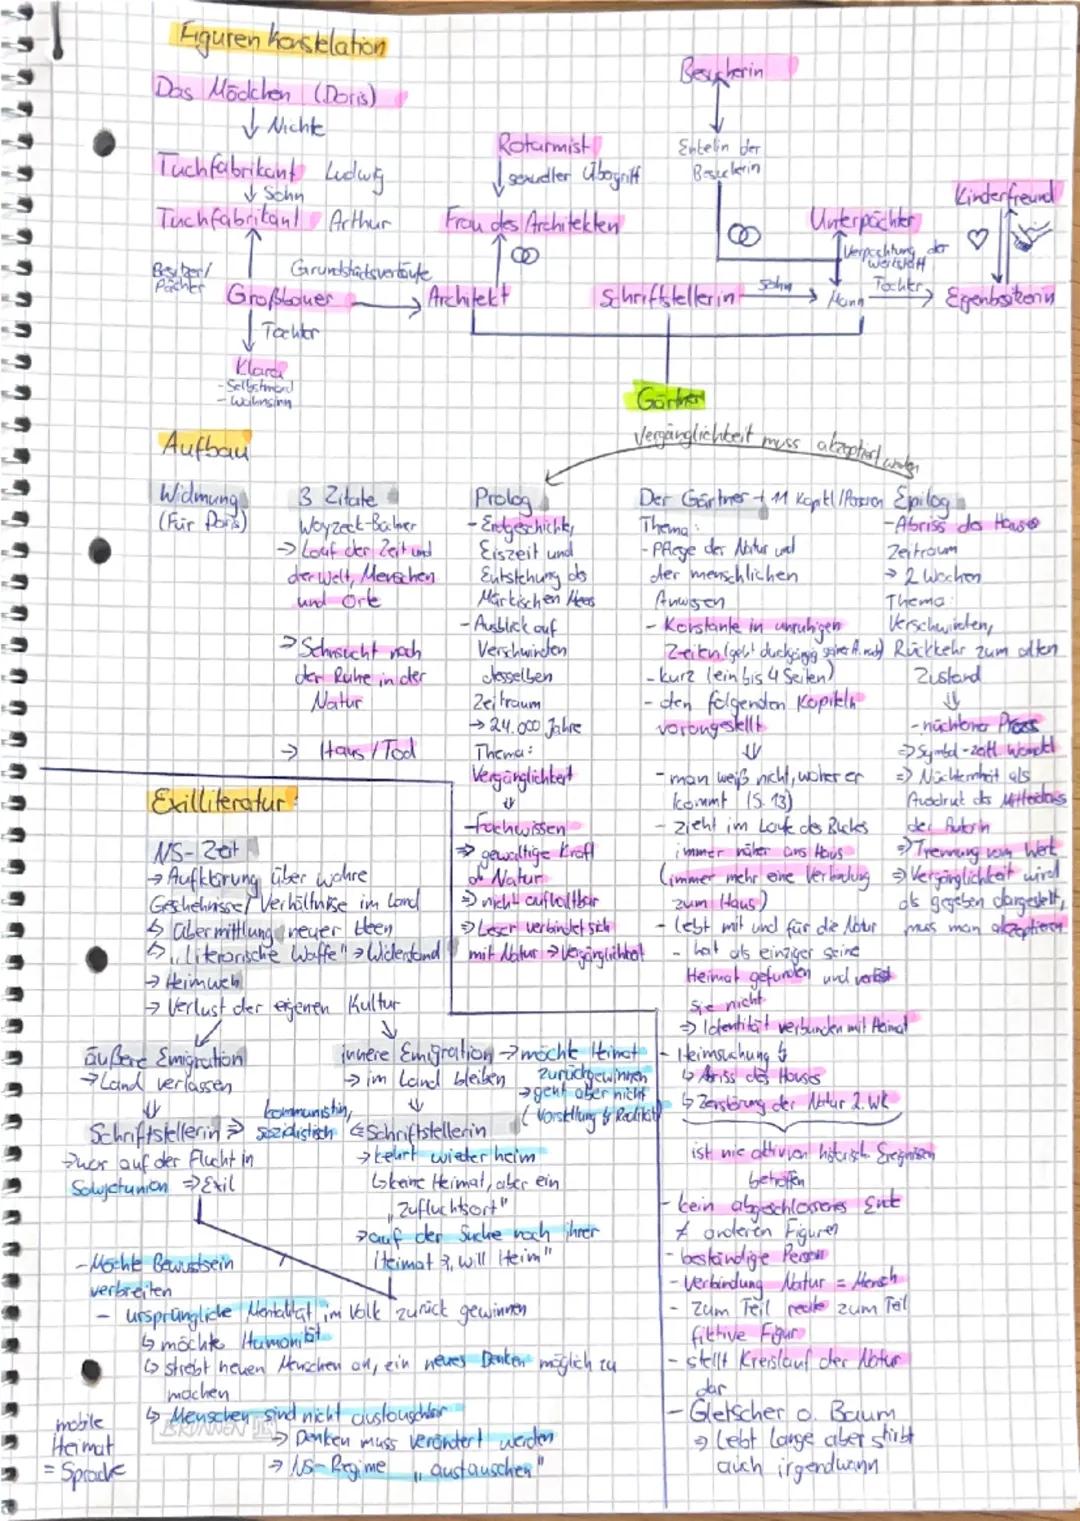 Figurenkonstelation
Das Mädchen (Doris)
↓ Nichte
Tuchfabrikant Ludwig
↓ Sohn
Tuchfabrikant Arthur
Besitzer/
Pächter
Grundstücksverkäufe
Großbauer → Architekt
↓ Tochter
Klara
- Selbstmord
- Wahnsinn
Rotarmist
↓ sexueller Übergriff
Frau des Architekten
Besucherin
Enkelin der
Besucherin
Unterpächter
Verpachtung der
Werkstatt
Kinderfreund
Schriftstellerin
Sohn
→ Mann
Tochter
→ Eigenbesitzerin
Gärtner
Vergänglichkeit muss akzeptiert werden
Aufbau
Widmung
(Für Doris)
3 Zitate
Woyzeck-Büchner
→ Lauf der Zeit und
der Welt, Menschen
und Orte
→ Sehnsucht nach
der Ruhe in der
Natur
→ Haus/Tod
Prolog
- Erdgeschichte,
Eiszeit und
Entstehung des
Märkischen Meeres
- Ausblick auf
Verschwinden
desselben
Zeitraum
→ 24.000 Jahre
Thema:
Vergänglichkeit
⇓
- Fachwissen
⇒ gewaltige Kraft
der Natur
⇒ nicht aufhaltbar
⇒ Leser verbindet sich
mit Natur → Vergänglichkeit
Der Gärtner + 11 Kapitel/Personen
Thema:
- Pflege der Natur und
der menschlichen
Anwesen
- Konstante in unruhigen
Zeiten (geht durchgängig seiner A. nach)
- kurz (ein bis 4 Seiten)
- den folgenden Kapiteln
vorangestellt
⇓
- man weiß nicht, woher er
kommt (S. 13)
- zieht im Laufe des Buches
immer näher ans Haus
(immer mehr eine Verbindung
zum Haus)
- lebt mit und für die Natur
- hat als einziger seine
Heimat gefunden und verlässt
sie nicht
⇒ Identität verbunden mit Heimat
- Heimsuchung
↳ Abriss des Hauses
↳ Zerstörung der Natur 2. WK
ist nie aktiv von historisch Ereignissen
betroffen
- kein abgeschlossenes Ende
≠ anderen Figuren
- beständige Person
- Verbindung Natur = Mensch
- Zum Teil reale zum Teil
fiktive Figur
- stellt Kreislauf der Natur
dar
- Gletscher o. Baum
⇒ lebt lange aber stirbt
auch irgendwann
Epilog
- Abriss des Hauses
Zeitraum
→ 2 Wochen
Thema:
Verschwinden,
Rückkehr zum alten
Zustand
⇓
- nüchterner Prozess
⇒ Symbol - zeitl. Wandel
⇒ Nüchternheit als
Ausdruck des Mitleidens
der Autorin
⇒ Trennung vom Werk
⇒ Vergänglichkeit wird
als gegeben dargestellt,
muss man akzeptieren
Exilliteratur:
NS-Zeit
→ Aufklärung über wahre
Geschehnisse/Verhältnisse im Land
↳ Übermittlung neuer Ideen
↳ „Literarische Waffe" → Widerstand
→ Heimweh
→ Verlust der eigenen Kultur
äußere Emigration
→ Land verlassen
⇓
Schriftstellerin ⇒ kommunistin,
sozialistisch
→ war auf der Flucht in
Sowjetunion ⇒ Exil
innere Emigration → möchte Heimat
zurückgewinnen
→ geht aber nicht
(Vorstellung ↯ Realität)
→ im Land bleiben
⇓
⇐ Schriftstellerin
→ kehrt wieder heim
↳ keine Heimat, aber ein
„Zufluchtsort"
→ auf der Suche nach ihrer
Heimat, „will Heim"
- Möchte Bewustsein
verbreiten
- ursprüngliche Mentalität im Volk zurück gewinnen
↳ möchte Humanität
↳ strebt neuen Menschen an, ein neues Denken möglich zu
machen
↳ Menschen sind nicht austauschbar
BRUNNEN
→ Denken muss verändert werden
→ NS-Regime „austauschen"
mobile
Heimat
= Sprache